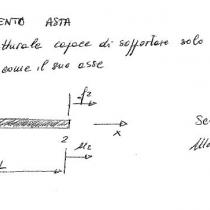 ENTO ASTA
tturale capace di sopportare solo
come il suo asse
f2
2
x
Se
L
u2